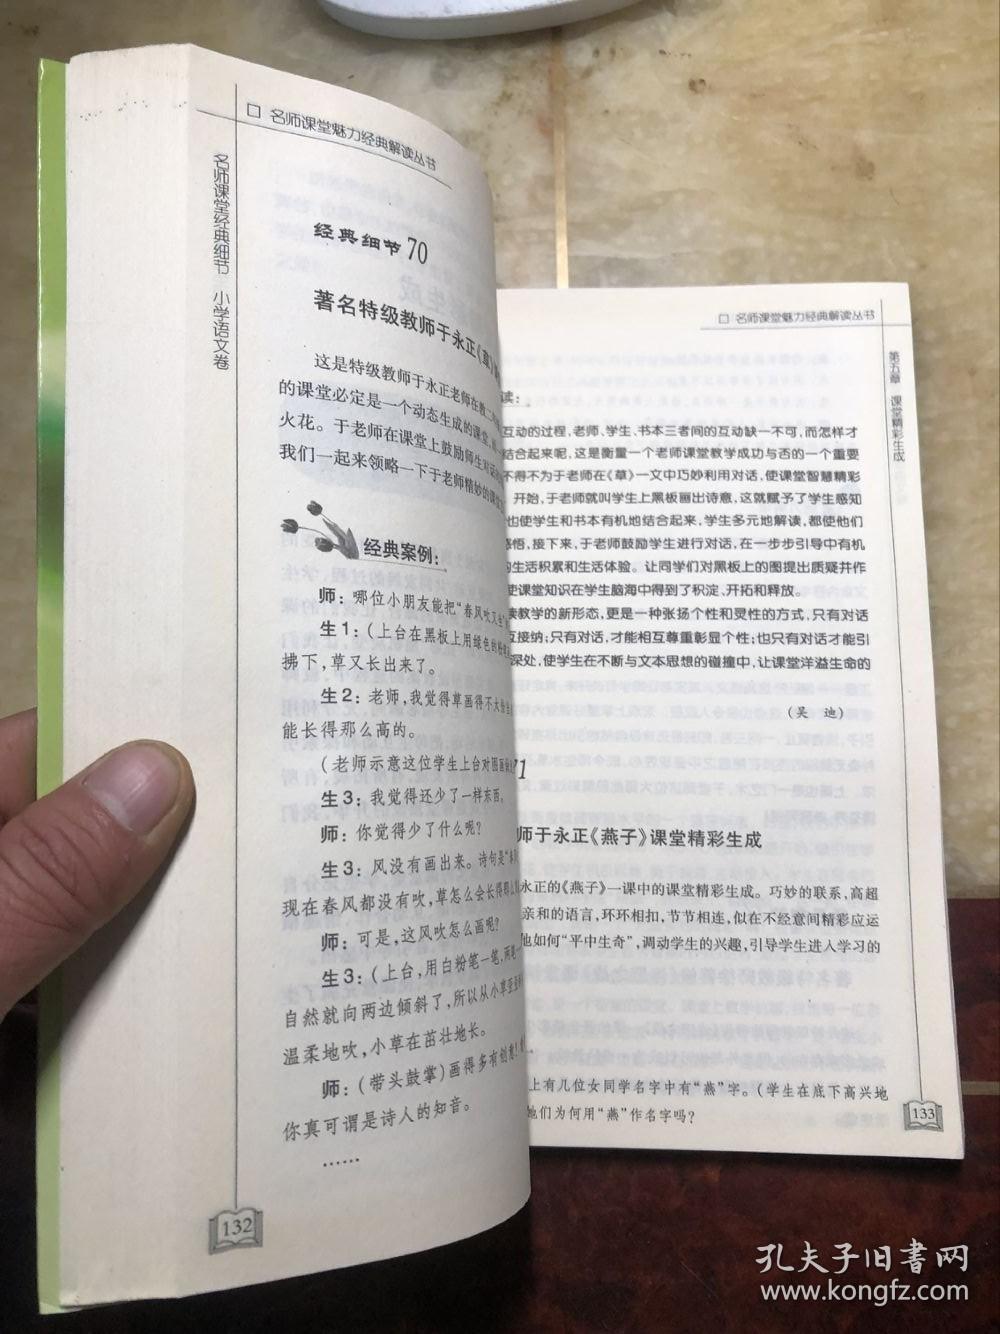 □ 名师课堂魅力经典解读丛书
名师课堂经典细节 小学语文卷
经典细节 70
著名特级教师于永正《草》
这是特级教师于永正老师在教二
的课堂必定是一个动态生成的课堂,
火花。于老师在课堂上鼓励师生对话
我们一起来领略一下于老师精妙的课堂
经典案例:
师:哪位小朋友能把“春风吹又生”
生1:(上台在黑板上用绿色的粉笔
拂下,草又长出来了。
生2:老师,我觉得草画得不大
能长得那么高的。
(老师示意这位学生上台对图画
生3:我觉得还少了一样东西。
师:你觉得少了什么呢?
生3:风没有画出来。诗句是“春风
现在春风都没有吹,草怎么会长得那
师:可是,这风吹怎么画呢?
生3:(上台,用白粉笔一笔,两笔
自然就向两边倾斜了,所以从小草
温柔地吹,小草在茁壮地长。
师:(带头鼓掌)画得多有创意!
你真可谓是诗人的知音。
……
132
□ 名师课堂魅力经典解读丛书
第五章 课堂精彩生成
读:
互动的过程,老师、学生、书本三者间的互动缺一不可,而怎样才
结合起来呢,这是衡量一个老师课堂教学成功与否的一个重要
不得不为于老师在《草》一文中巧妙利用对话,使课堂智慧精彩
开始,于老师就叫学生上黑板画出诗意,这就赋予了学生感知
也使学生和书本有机地结合起来,学生多元地解读,都使他们
感悟,接下来,于老师鼓励学生进行对话,在一步步引导中有机
的生活积累和生活体验。让同学们对黑板上的图提出质疑并作
使课堂知识在学生脑海中得到了积淀、开拓和释放。
读教学的新形态,更是一种张扬个性和灵性的方式,只有对话
互接纳;只有对话,才能相互尊重彰显个性;也只有对话才能引
深处,使学生在不断与文本思想的碰撞中,让课堂洋溢生命的
(吴 迪)
71
师于永正《燕子》课堂精彩生成
永正的《燕子》一课中的课堂精彩生成。巧妙的联系,高超
亲和的语言,环环相扣,节节相连,似在不经意间精彩应运
他如何“平中生奇”,调动学生的兴趣,引导学生进入学习的
上有几位女同学名字中有“燕”字。(学生在底下高兴地
她们为何用“燕”作名字吗?
133
孔夫子旧书网
www.kongfz.com